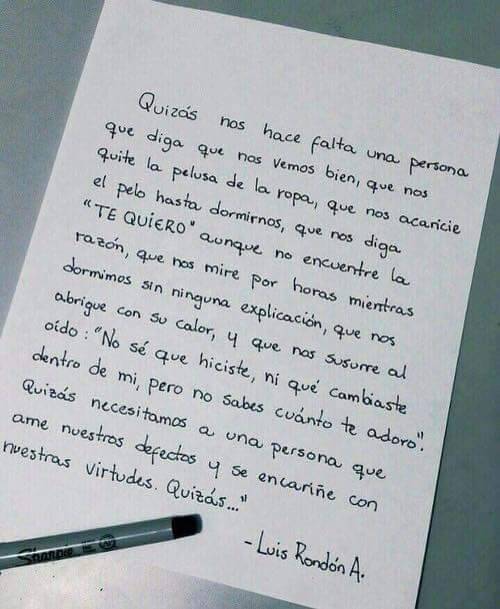 Quizás nos hace falta una persona
que diga que nos vemos bien, que nos
quite la pelusa de la ropa, que nos acaricie
el pelo hasta dormirnos, que nos diga
"TE QUIERO" aunque no encuentre la
razón, que nos mire por horas mientras
dormimos sin ninguna explicación, que nos
abrigue con su calor, y que nos susurre al
oído: "No sé que hiciste, ni qué cambiaste
dentro de mi, pero no sabes cuánto te adoro".
Quizás necesitamos a una persona que
ame nuestros defectos y se encariñe con
nuestras virtudes. Quizás..."
- Luis Rondón A.
Sharpie